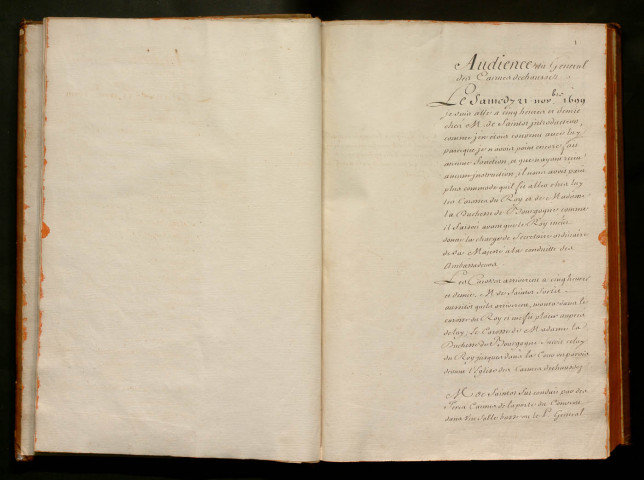 1
Audience du General
des Carmes dechaussez
Le Samedy 21 novbre 1699
je suis allé a cinq heures et demie
chez Mr. de Sainctot introducteur,
comme j'en étois convenu avec luy
parceque je n'avois point encore fait
aucune fonction, et que n'ayant receu
aucune instruction, il nous avoit paru
plus commode qu'il fit aller chez luy
les Carosses du Roy et de Madame
la Duchesse de Bourgogne comme
il faisoit avant que le Roy m'eut
donné la charge de Secretaire ordinaire
de Sa Majesté a la conduitte des
Ambassadeurs.
Les Carosses arriverent a cinq heures
et demie. Mr. de Sainctot sortit
aussitot qu'ils arriverent, monta dans le
carosse du Roy et me fit placer aupres
de luy; Le Carosse de Madame la
Duchesse de Bourgogne suivit celuy
du Roy jusques dans la Cour en parvis
devant l'Eglise des Carmes dechaussez
Mr. de Sainctot fut conduit par des
Peres Carmes de la porte du Couvent
dans une Salle basse ou le P. General